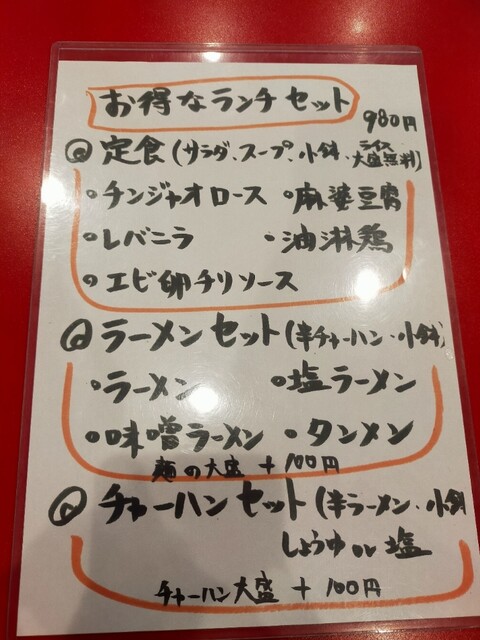 お得なランチセット 980円
@ 定食(サラダ、スープ、小鉢、ライス大盛無料)
・チンジャオロース ・麻婆豆腐
・レバニラ ・油淋鶏
・エビ卵チリソース
@ ラーメンセット(半チャーハン・小鉢)
・ラーメン ・塩ラーメン
・味噌ラーメン ・タンメン
麺の大盛 +100円
@ チャーハンセット(半ラーメン・小鉢
しょうゆ or 塩
チャーハン大盛 +100円